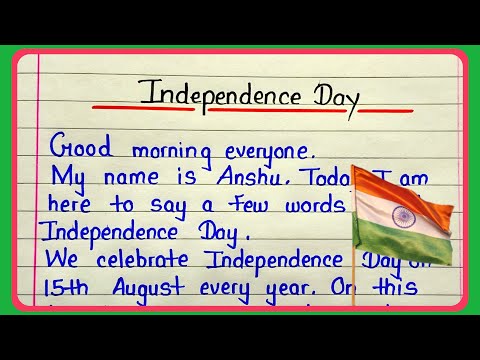 Independence Day
Good morning everyone.
My name is Anshu. Today I am
here to say a few words
Independence Day.
We celebrate Independence Day on
15th August every year. On this